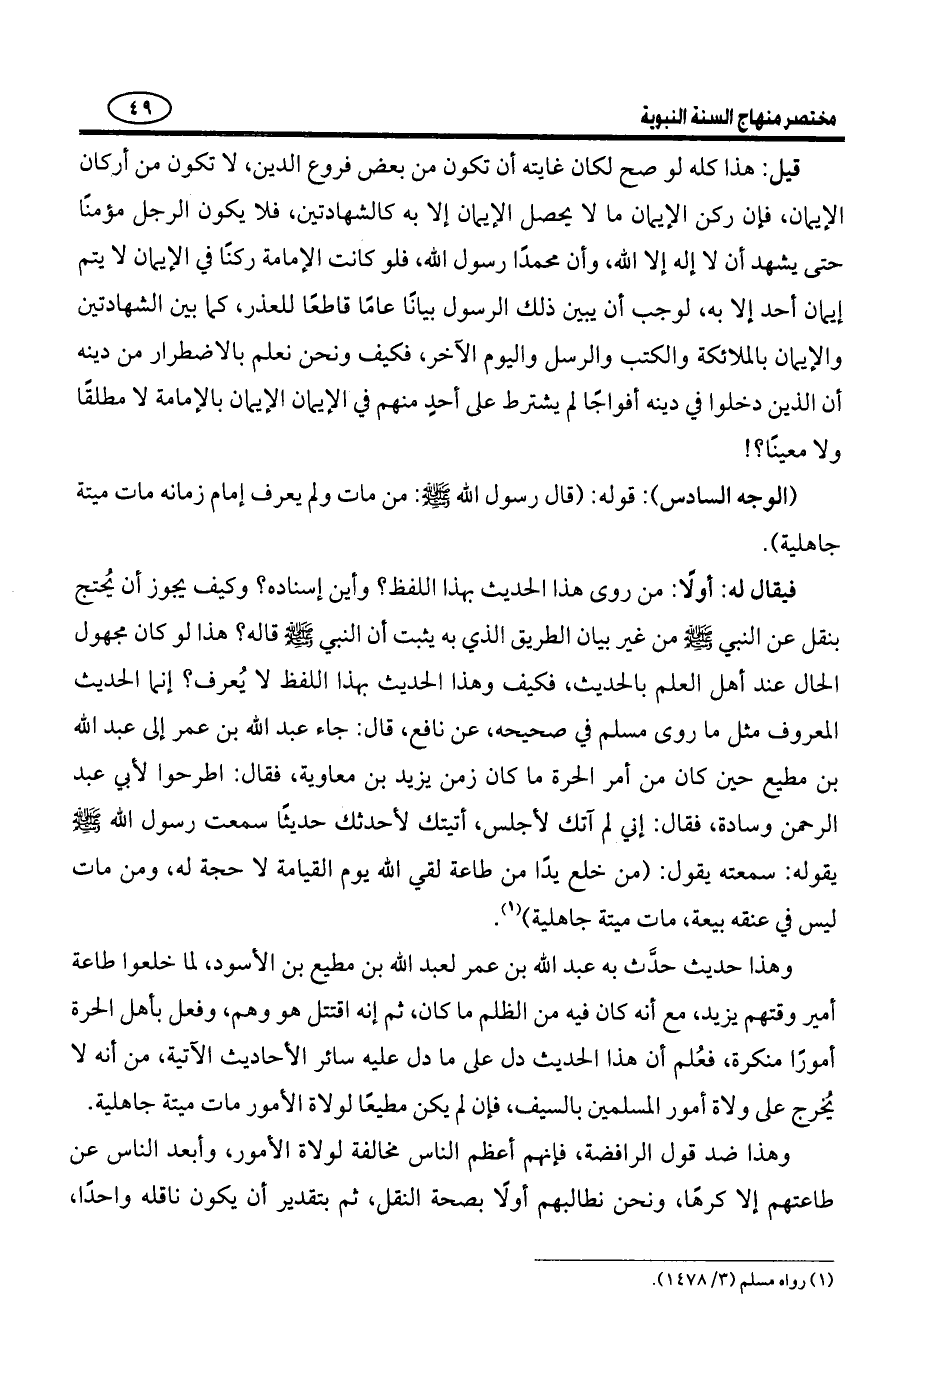 مختصر منهاج السنة النبوية
٤٩
قيل: هذا كله لو صح لكان غايته أن تكون من بعض فروع الدين، لا تكون من أركان
الإيمان، فإن ركن الإيمان ما لا يحصل الإيمان إلا به كالشهادتين، فلا يكون الرجل مؤمنًا
حتى يشهد أن لا إله إلا الله، وأن محمدًا رسول الله، فلو كانت الإمامة ركنًا في الإيمان لا يتم
إيمان أحد إلا به، لوجب أن يبين ذلك الرسول بيانًا عامًا قاطعًا للعذر، كما بين الشهادتين
والإيمان بالملائكة والكتب والرسل واليوم الآخر، فكيف ونحن نعلم بالاضطرار من دينه
أن الذين دخلوا في دينه أفواجًا لم يشترط على أحدٍ منهم في الإيمان الإيمان بالإمامة لا مطلقًا
ولا معينًا؟!
(الوجه السادس): قوله: (قال رسول الله ﷺ: من مات ولم يعرف إمام زمانه مات ميتة
جاهلية).
فيقال له: أولًا: من روى هذا الحديث بهذا اللفظ؟ وأين إسناده؟ وكيف يجوز أن يُحتج
بنقل عن النبي ﷺ من غير بيان الطريق الذي به يثبت أن النبي ﷺ قاله؟ هذا لو كان مجهول
الحال عند أهل العلم بالحديث، فكيف وهذا الحديث بهذا اللفظ لا يُعرف؟ إنما الحديث
المعروف مثل ما روى مسلم في صحيحه، عن نافع، قال: جاء عبد الله بن عمر إلى عبد الله
بن مطيع حين كان من أمر الحرة ما كان زمن يزيد بن معاوية، فقال: اطرحوا لأبي عبد
الرحمن وسادة، فقال: إني لم آتك لأجلس، أتيتك لأحدثك حديثًا سمعت رسول الله ﷺ
يقوله: سمعته يقول: (من خلع يدًا من طاعة لقي الله يوم القيامة لا حجة له، ومن مات
ليس في عنقه بيعة، مات ميتة جاهلية)(١).
وهذا حديث حدَّث به عبد الله بن عمر لعبد الله بن مطيع بن الأسود، لما خلعوا طاعة
أمير وقتهم يزيد، مع أنه كان فيه من الظلم ما كان، ثم إنه اقتتل هو وهم، وفعل بأهل الحرة
أمورًا منكرة، فعُلم أن هذا الحديث دل على ما دل عليه سائر الأحاديث الآتية، من أنه لا
يُخرج على ولاة أمور المسلمين بالسيف، فإن لم يكن مطيعًا لولاة الأمور مات ميتة جاهلية.
وهذا ضد قول الرافضة، فإنهم أعظم الناس مخالفة لولاة الأمور، وأبعد الناس عن
طاعتهم إلا كرهًا، ونحن نطالبهم أولًا بصحة النقل، ثم بتقدير أن يكون ناقله واحدًا،
(١) رواه مسلم (٣/ ١٤٧٨).